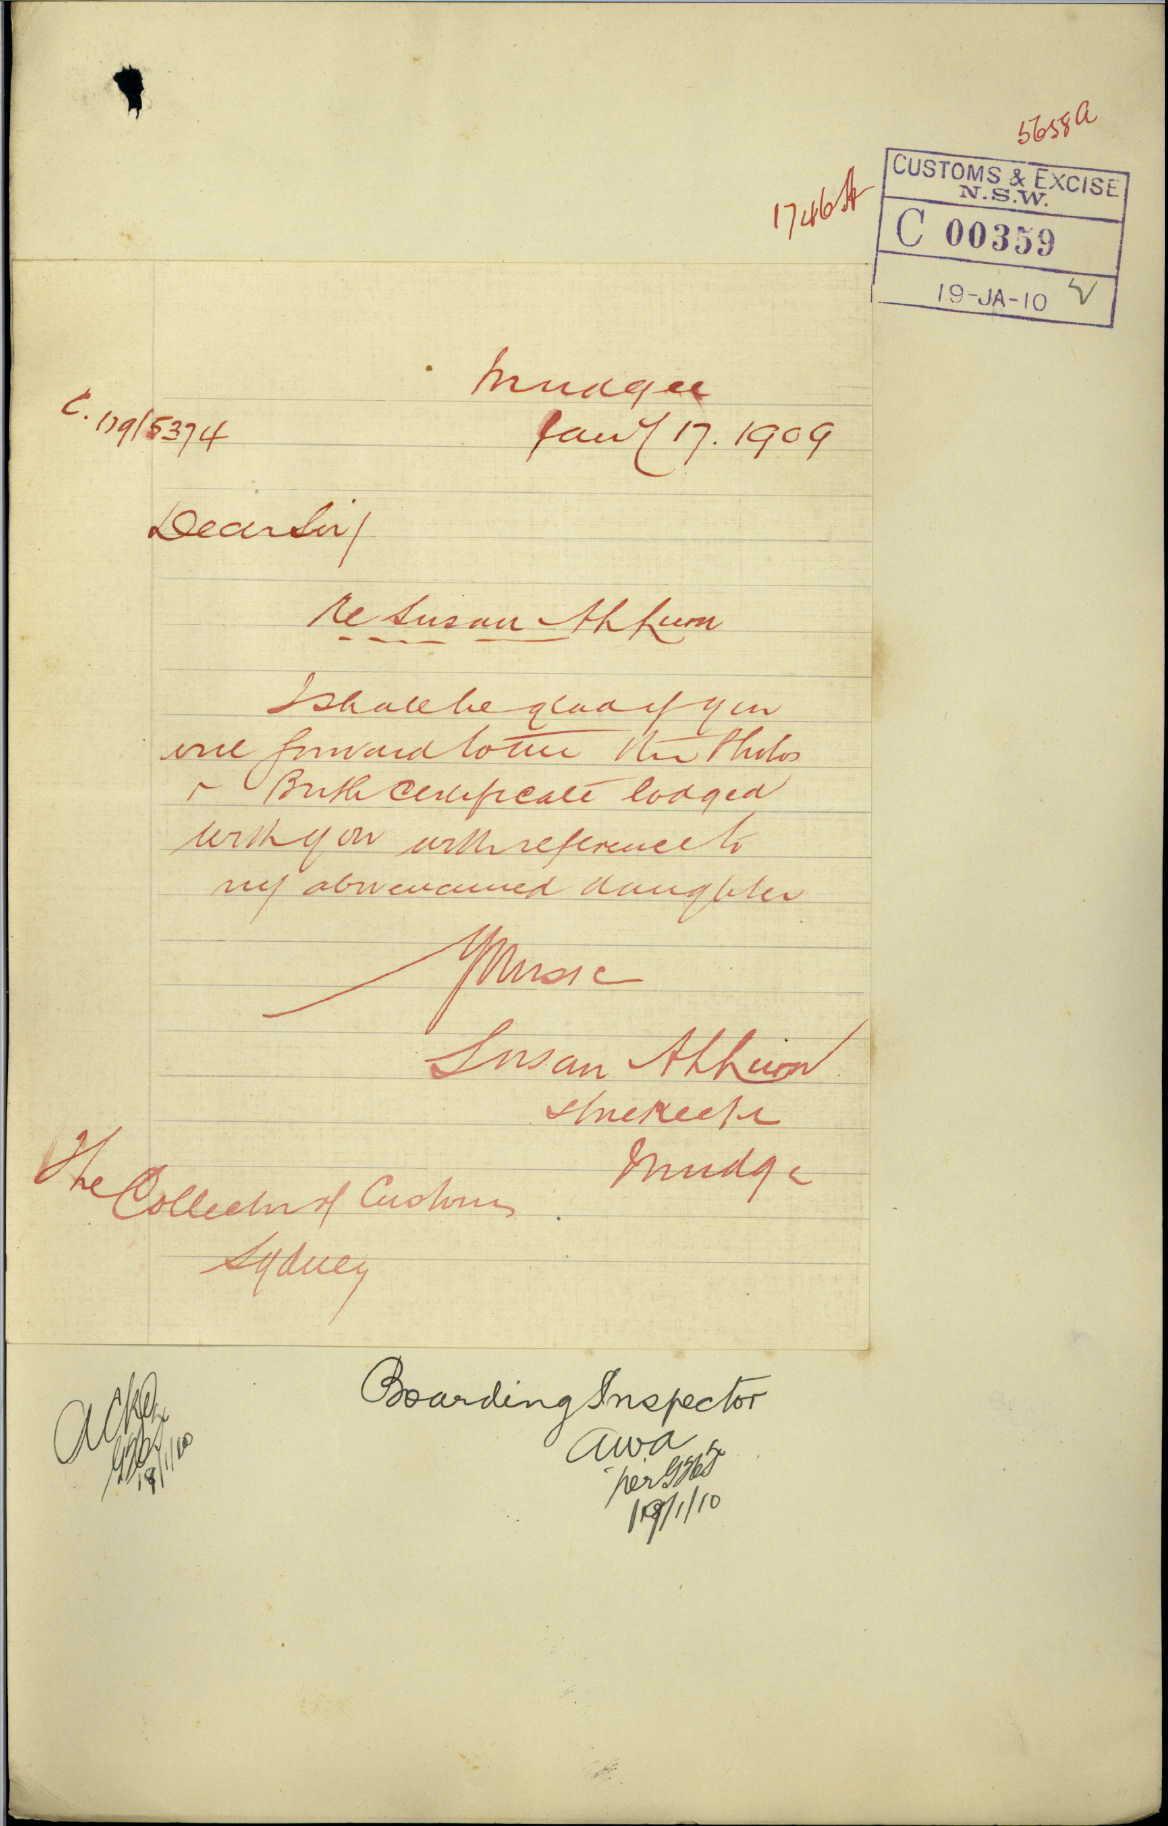 5658A
1746A
CUSTOMS & EXCISE
N.S.W.
C 00359
19-JA-10
Mudgee
C. 09/5374
Jany 17. 1909
Dear Sir/
Re Susan Ah Lum
I shall be glad if you
will forward to me the Photos
& Birth Certificate lodged
with you with reference to
my abovenamed daughter
Susan Ah Lum
Storekeeper
Mudgee
The Collector of Customs
Sydney
Boarding Inspector
Ackd
AWA
18/1/10
per
19/1/10